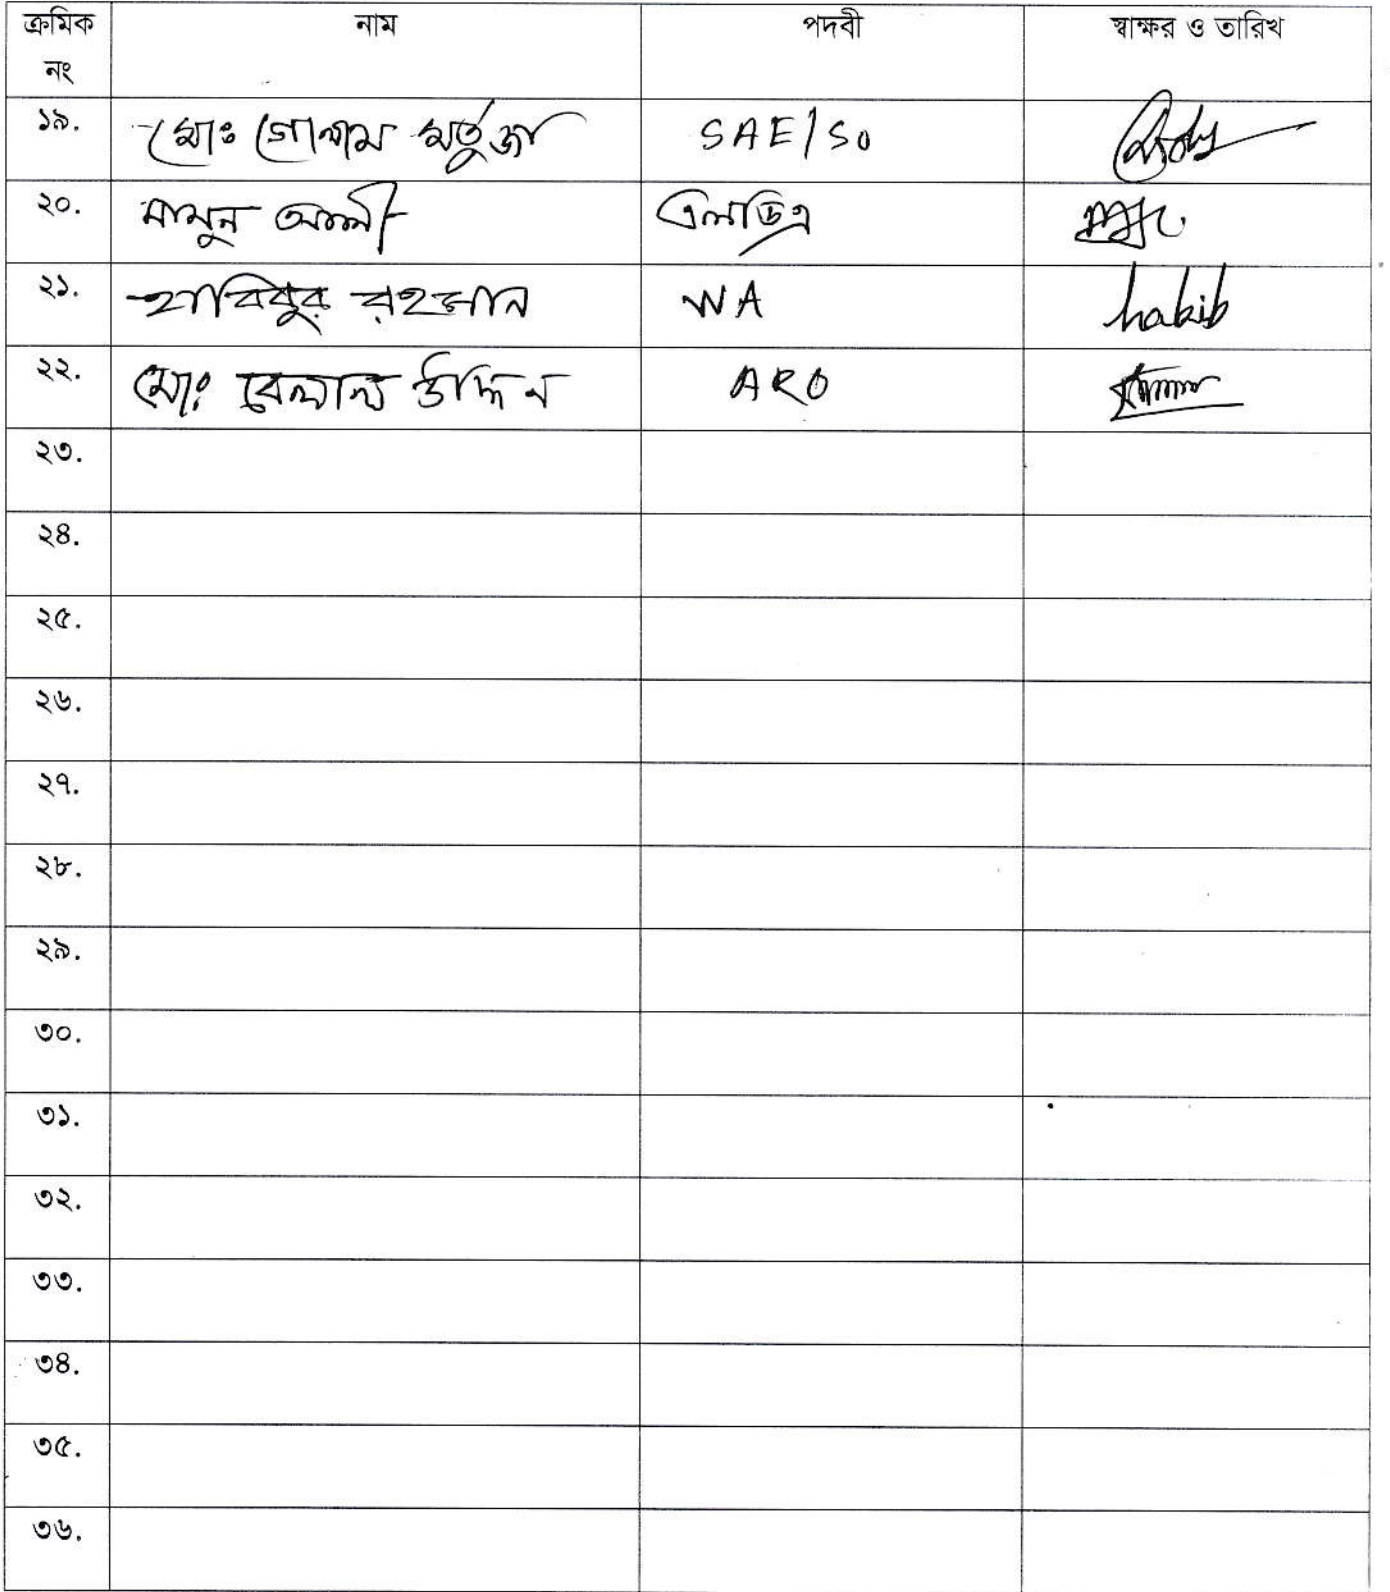 ক্রমিক নাম পদবী স্বাক্ষর ও তারিখ
নং
১৯. মোঃ গোলাম মর্তুজা SAE/SO
২০. মামুন আলী এলডিএ
২১. হাবিবুর রহমান WA habib
২২. মোঃ বেলাল উদ্দিন ARO
২৩.
২৪.
২৫.
২৬.
২৭.
২৮.
২৯.
৩০.
৩১.
৩২.
৩৩.
৩৪.
৩৫.
৩৬.